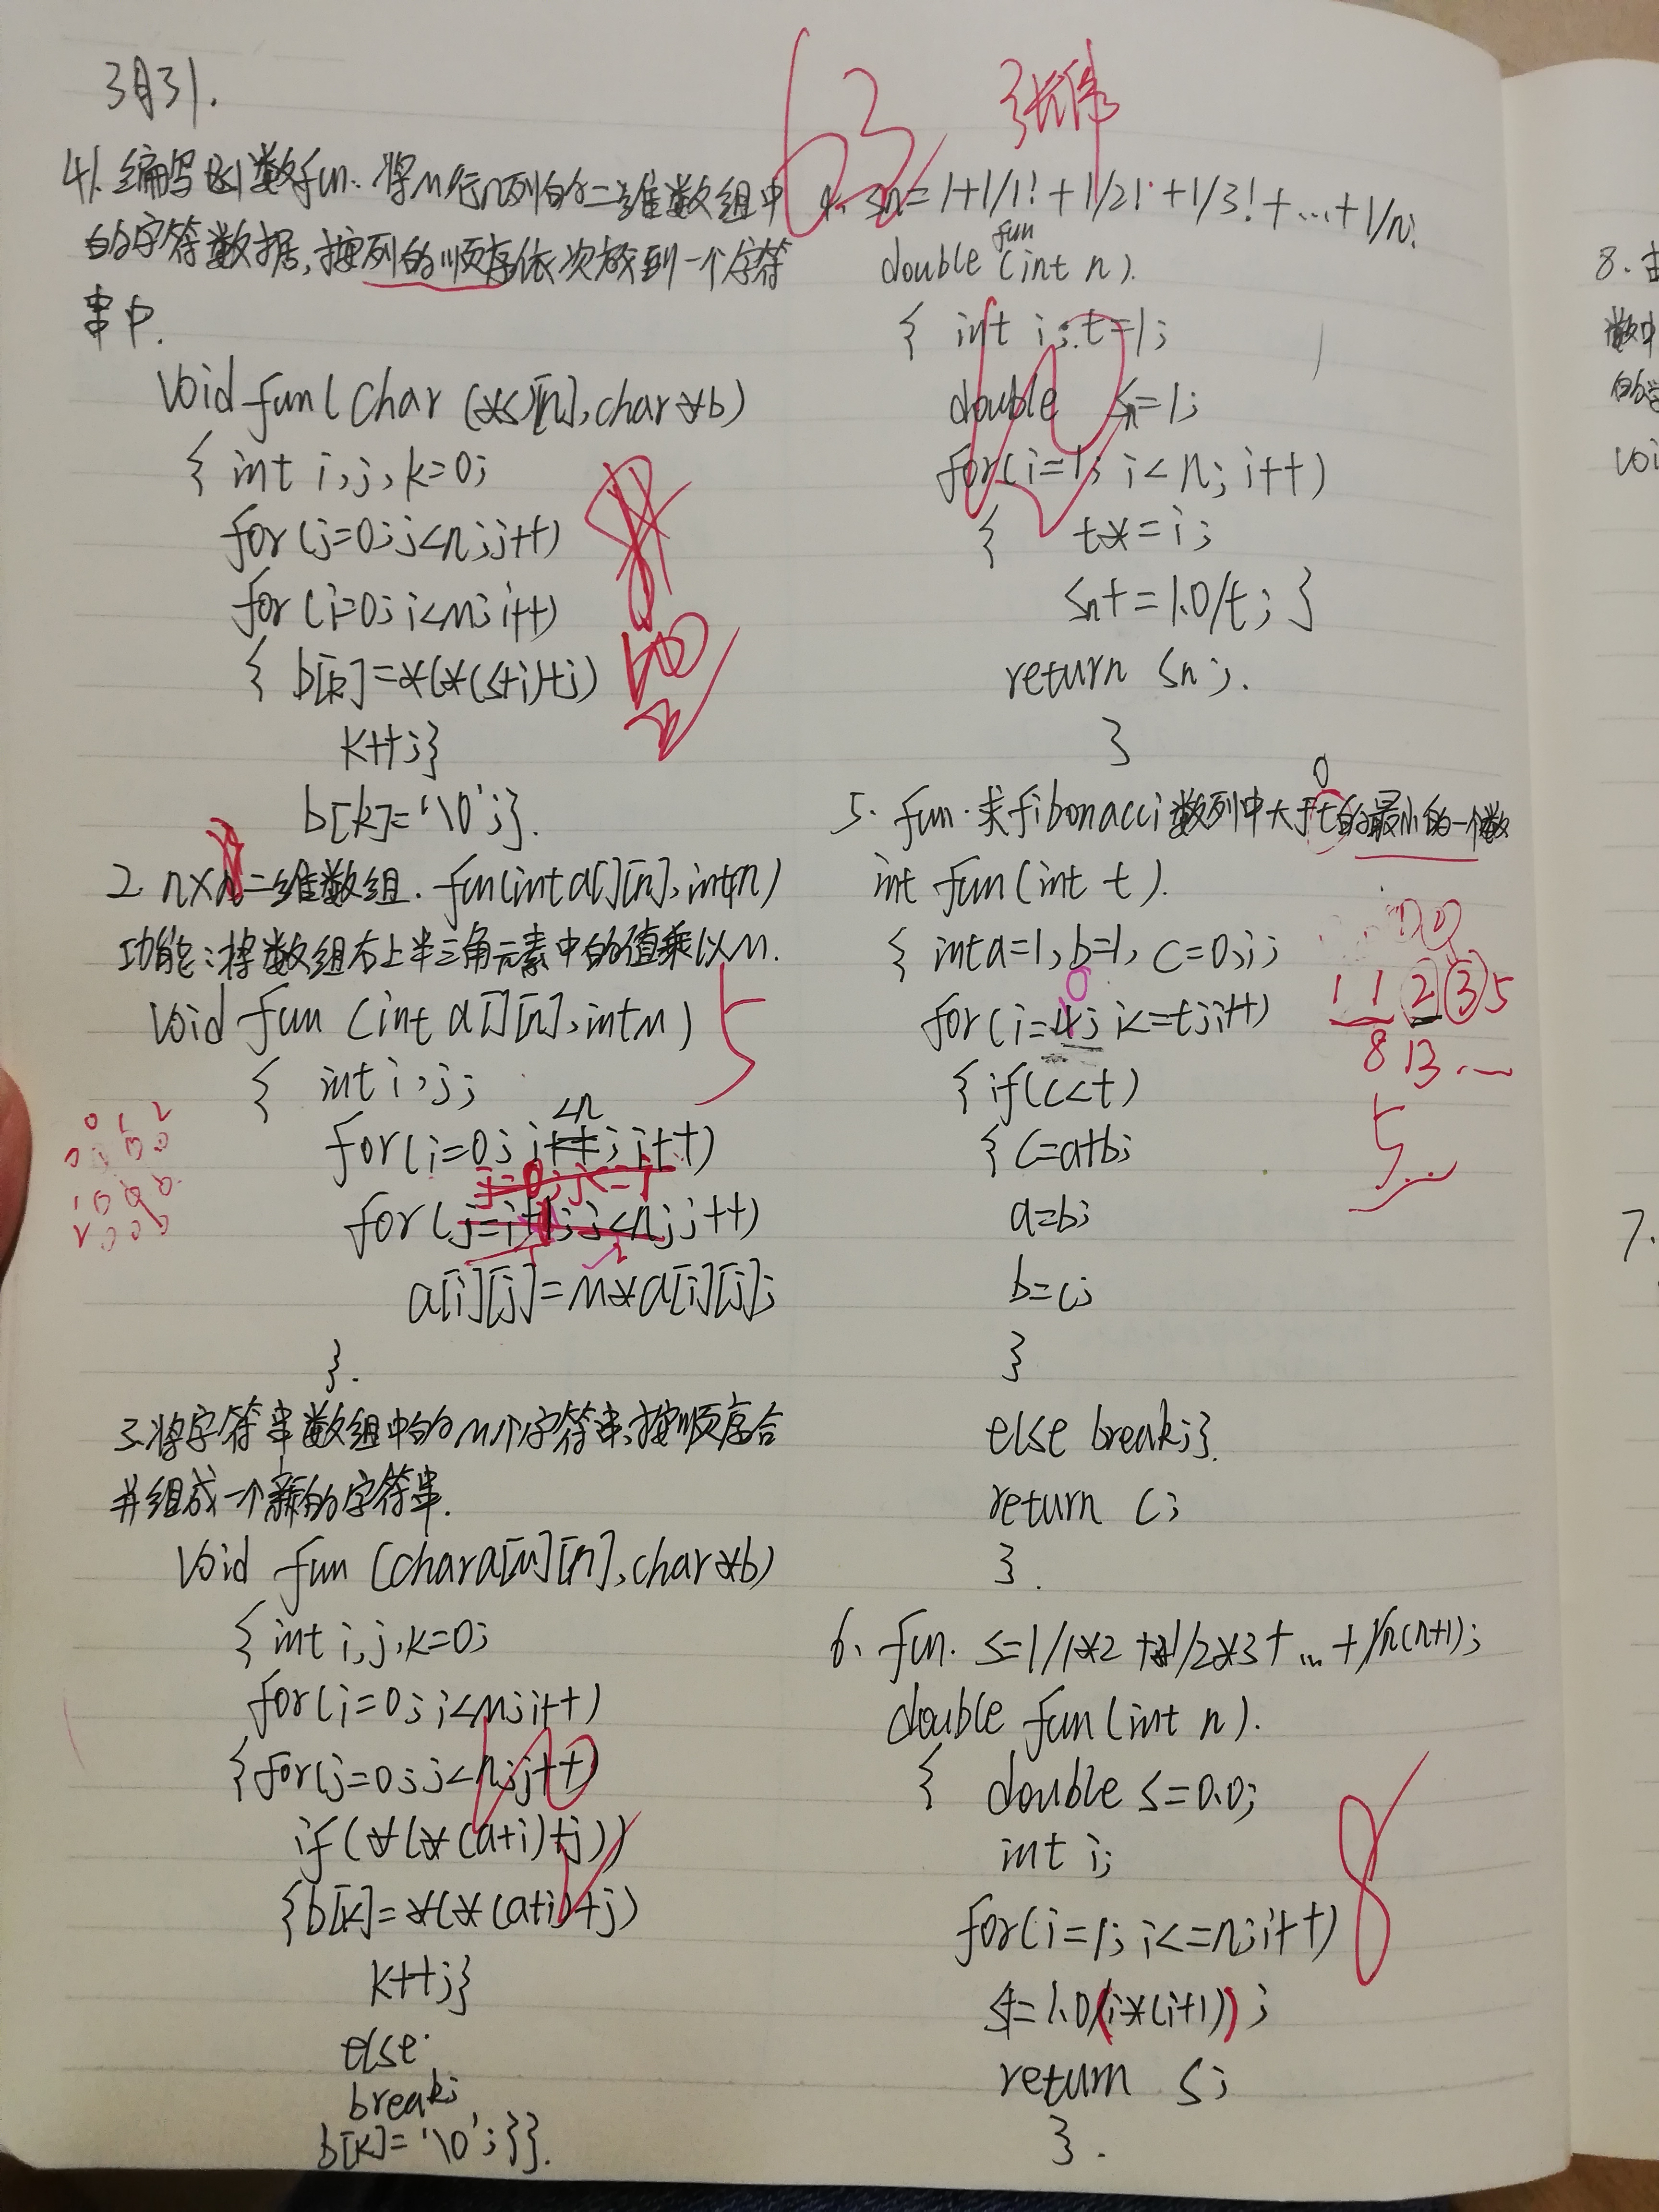 3月31.
63 张伟
41. 编写函数fun. 将M行n列的二维数组中
的字符数据,按列的顺序依次放到一个字符
串中.
void fun(char (*s)[n],char*b)
{ int i,j,k=0;
for(j=0;j<n;j++)
for(i=0;i<m;i++)
{ b[k]=*(*(s+i)+j)
k++;}
b[k]='\0';}.
2 n×n二维数组. fun(int a[][n],int n)
功能:将数组右上半三角元素中的值乘以M.
void fun (int a[][n],int m)
5
{ int i,j;
for(i=0;i++;i++)
<n
0 1 2
for(j=i+1;j<n;j++)
a[i][j]=m*a[i][j];
}.
3.将字符串数组中的M个字符串,按顺序合
并组成一个新的字符串.
void fun (char a[M][n],char*b)
{int i,j,k=0;
for(i=0;i<M;i++)
{for(j=0;j<n;j++)
10
if(*(*(a+i)+j))
{b[k]=*(*(a+i)+j)
k++;}
else
break;
b[k]='\0';}}.
4. Sn=1+1/1!+1/2!+1/3!+...+1/n!
double fun (int n).
{ int i;t=1;
double Sn=1;
10
for(i=1;i<n;i++)
{ t*=i;
Sn+=1.0/t; }
return Sn;.
}
5. fun.求fibonacci数列中大于t的最小的一个数
int fun(int t).
{ int a=1,b=1, c=0,i;
for(i=4;i<=t;i++)
0
1 1 2 3 5
8 13 ...
{if(c<t)
5
{ c=a+b;
a=b;
b=c;
}
else break;}.
return c;
}.
6. fun. s=1/1*2+1/2*3+...+1/n(n+1);
double fun(int n).
{ double s=0.0;
int i;
8
for(i=1;i<=n;i++)
s+=1.0/(i*(i+1));
return s;
}.
8.
数中
的
voi
7.